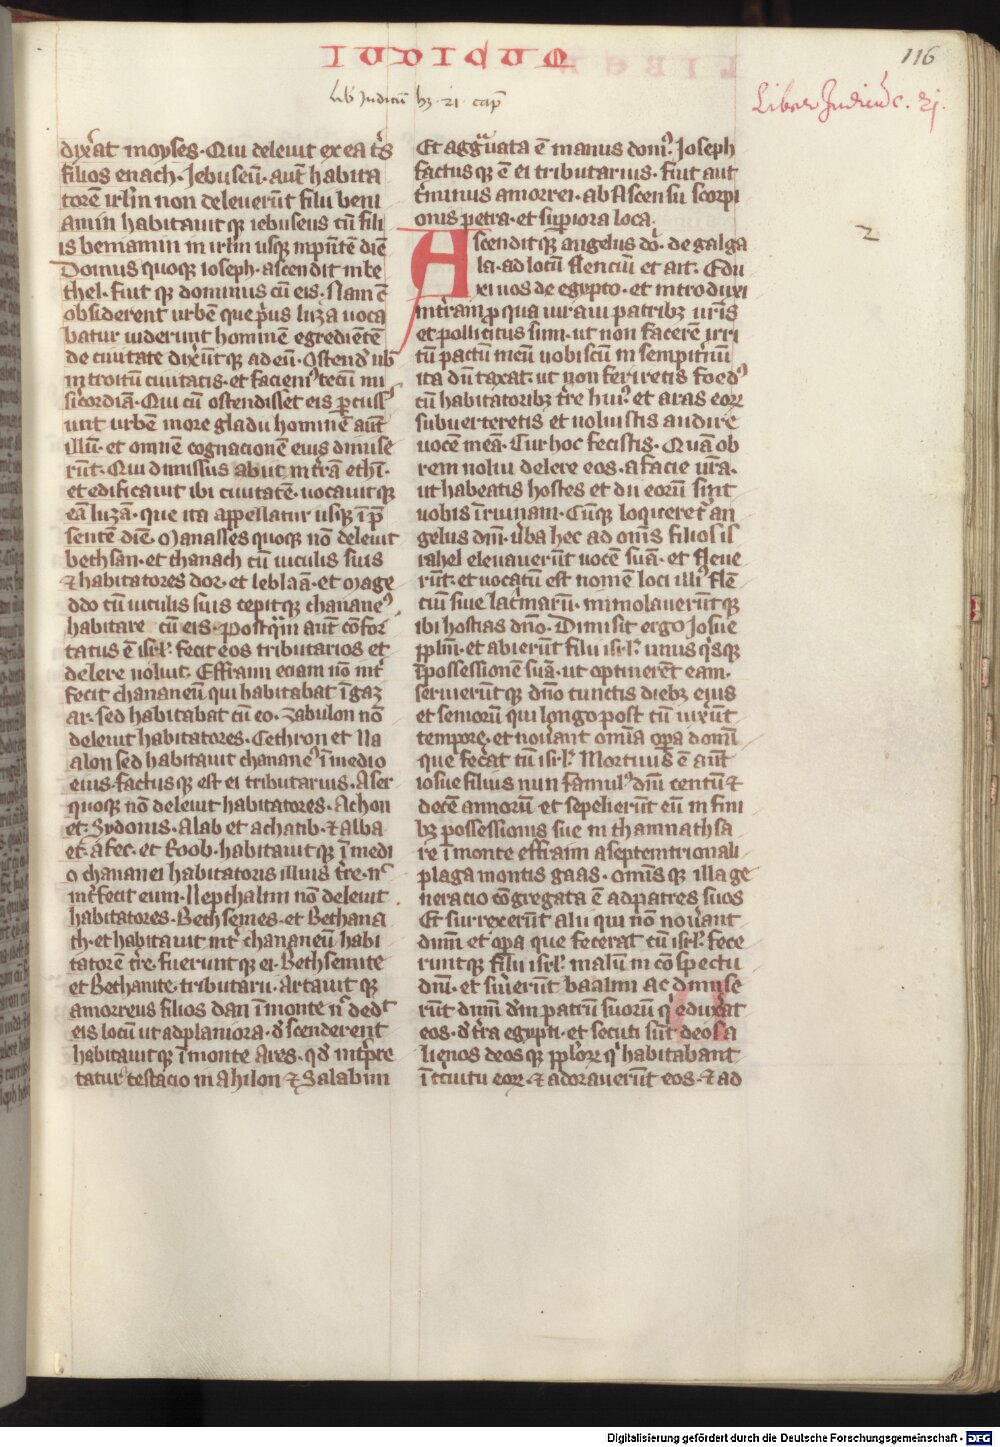 IUDICUM
116
lib Iudicũ hꝫ .21. cap̃
Liber Iudicũ c. 21.
dix̾at moyses. Qui deleuit ex ea tr̃s
filios enach. Iebuseũ. aut̃ habita
torẽ irl̃m non deleuer̃t filii beni
amin habitauit qꝫ iebuseus cũ fili
is beniamin in irl̃m usqꝫ inpñtẽ diẽ
Domus quoqꝫ ioseph. ascendit in be
thel. Fuit qꝫ dominus cũ eis. Nam cũ
obsiderent urbẽ que p̃us luza uoca
batur uiderunt hominẽ egredientẽ
de ciuitate dixer̃t qꝫ ad eũ. Ostend̃ nob̃
introitũ ciuitatis. et faciemꝰ tecũ mi
sicordiã. Qui cũ ostendisset eis ꝑcuss̃
unt urbẽ more gladii hominẽ aut̃
illũ. et omnẽ cognacionẽ eius dimise
rũt. Qui dimissus abiit in tr̃ã ethĩ.
et edificauit ibi ciuitatẽ. uocauit qꝫ
eã luzã. que ita appellatur usqꝫ ĩ p̃
sentẽ diẽ. Manasses quoqꝫ nõ deleuit
bethsan. et thanach cũ uiculis suis
⁊ habitatores dor. et leblaã. et mage
ddo cũ uiculis suis cepit qꝫ chananeꝰ
habitare cũ eis. Postq̃m aut̃ cõfor
tatus ẽ isrl̃. fecit eos tributarios et
delere noluit. Effraim eciam nõ int̾
fecit chananeũ qui habitabat ĩ gaz
ar. sed habitabat cũ eo. Zabulon nõ
deleuit habitatores. Cethron et Na
alon sed habitauit chananeꝰ ĩ medio
eius. factus qꝫ est ei tributarius. Aser
quoqꝫ nõ deleuit habitatores. Achon
et. Sydonis. Alab et achatib. ⁊ alba
et. afec. et Roob. habitauit qꝫ ĩ medi
o chananei habitatoris illius tr̃re. nͨ
int̾fecit eum. Neptalim nõ deleuit
habitatores. Bethsemes. et Bethana
th. et habitauit int̾ chananeũ habi
tatorẽ tr̃e. fuerunt qꝫ ei. Bethsemite
et Bethanite. tributarii. Artauit qꝫ
amorreus filios dan ĩ monte nͨ dedᵗ
eis locũ ut adplaniora. dscenderent
habitauit qꝫ ĩ monte Ares. qd̾ int̾pre
tatur testacio in ahilon ⁊ Salabim
Et agg̃uata ẽ manus domꝰ. Ioseph
factus qꝫ ẽ ei tributarius. Fuit aut
t̃minus amorrei. ab Ascensu scorpi
onis petra. et sup̾iora loca.
Ascendit qꝫ angelus dõ. de galga
la. ad locũ flenciũ et ait. Edu
xi uos de egypto. et introduxi
in tr̃am ꝓ qua iuraui patribꝫ ur̃is
et pollicitus sum. ut non facerẽ irri
tũ pactũ meũ uobiscũ in sempit̾nũ
ita dũ taxat. ut non feriretis foedꝰ
cũ habitatoribꝫ tr̃re huiꝰ. et aras eorꝝ
subuerteretis et noluistis audire
uocẽ meã. Cur hoc fecistis. Quã ob
rem nolui delere eos. a facie ur̃a.
ut habeatis hostes et dii eorũ sint
uobis ĩ ruinam. Cũqꝫ loqueret̾ an
gelus dñi. u̾ba hec ad om̃s filios is
rahel eleuauerũt uocẽ suã. et fleue
rũt. et uocatũ est nomẽ loci illiꝰ flẽ
ciũ siue lac̾marũ. immolauerũt qꝫ
ibi hostias dño. Dimisit ergo Iosue
ppl̃m. et abierũt filii isrl̃. unus q̾sqꝫ
ĩ possessionẽ suã. ut optinerẽt eam.
seruierũt qꝫ dño cunctis diebꝫ eius
et seniorũ qui longo post eũ uix̾ũt
tempore. et nou̾ant omĩa op̾a domĩ
que fec̾at cũ isrl̃. Mortuus ẽ aut̃
iosue filius nun famulꝰ dñi centũ ⁊
decẽ annorũ et sepelierũt eũ in fini
bꝫ possessionis sue in thamnathsa
re ĩ monte effraim aseptemtrionali
plaga montis gaas. Om̃is qꝫ illa ge
neracio cõgregata ẽ ad patres suos
Et surrexerũt alii qui nõ nou̾ant
dñm. et op̾a que fecerat cũ isrl̃. fece
runt qꝫ filii isrl̃. malũ in cõspectu
dñi. et s̾uierũt baalim ac dimise
rũt dñm dm̃ patrũ suorũ q̾ edux̾at
eos. d̾ tr̃ra egypti. et secuti sũt deos a
lienos deos qꝫ ppl̃orꝝ q̾ habitabant
ĩ circuitu eorꝝ. ⁊ adorauerũt eos. ⁊ ad
2
Digitalisierung gefördert durch die Deutsche Forschungsgemeinschaft - DFG